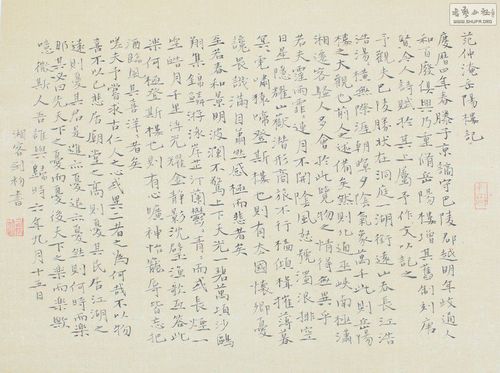 范仲淹岳陽樓記
慶曆四年春滕子京謫守巴陵郡越明年政通人
和百廢俱興乃重脩岳陽樓增其舊制刻唐
賢今人詩賦於其上屬予作文以記之
予觀夫巴陵勝狀在洞庭一湖銜遠山吞長江浩
浩湯湯橫無際涯朝暉夕陰氣象萬千此則岳陽
樓之大觀也前人述備矣然則北通巫峽南極瀟
湘遷客騷人多會於此覽物之情得無異乎
若夫霪雨霏霏連月不開陰風怒號濁浪排空
日星隱耀山嶽潛形商旅不行檣傾楫摧薄暮
冥冥虎嘯猿啼登斯樓也則有去國懷鄉憂
讒畏譏滿目蕭然感極而悲者矣
至若春和景明波瀾不驚上下天光一碧萬頃沙鷗
翔集錦鱗游泳岸芷汀蘭鬱鬱青青而或長煙一
空皓月千里浮光耀金靜影沉璧漁歌互答此
樂何極登斯樓也則有心曠神怡寵辱皆忘把
酒臨風其喜洋洋者矣
嗟夫予嘗求古仁人之心或異二者之為何哉不以物
喜不以己悲居廟堂之高則憂其民居江湖之
遠則憂其君是進亦憂退亦憂然則何時而樂
耶其必曰先天下之憂而憂後天下之樂而樂歟
噫微斯人吾誰與歸時六年九月十五日
書
WWW.SHUFA.ORG